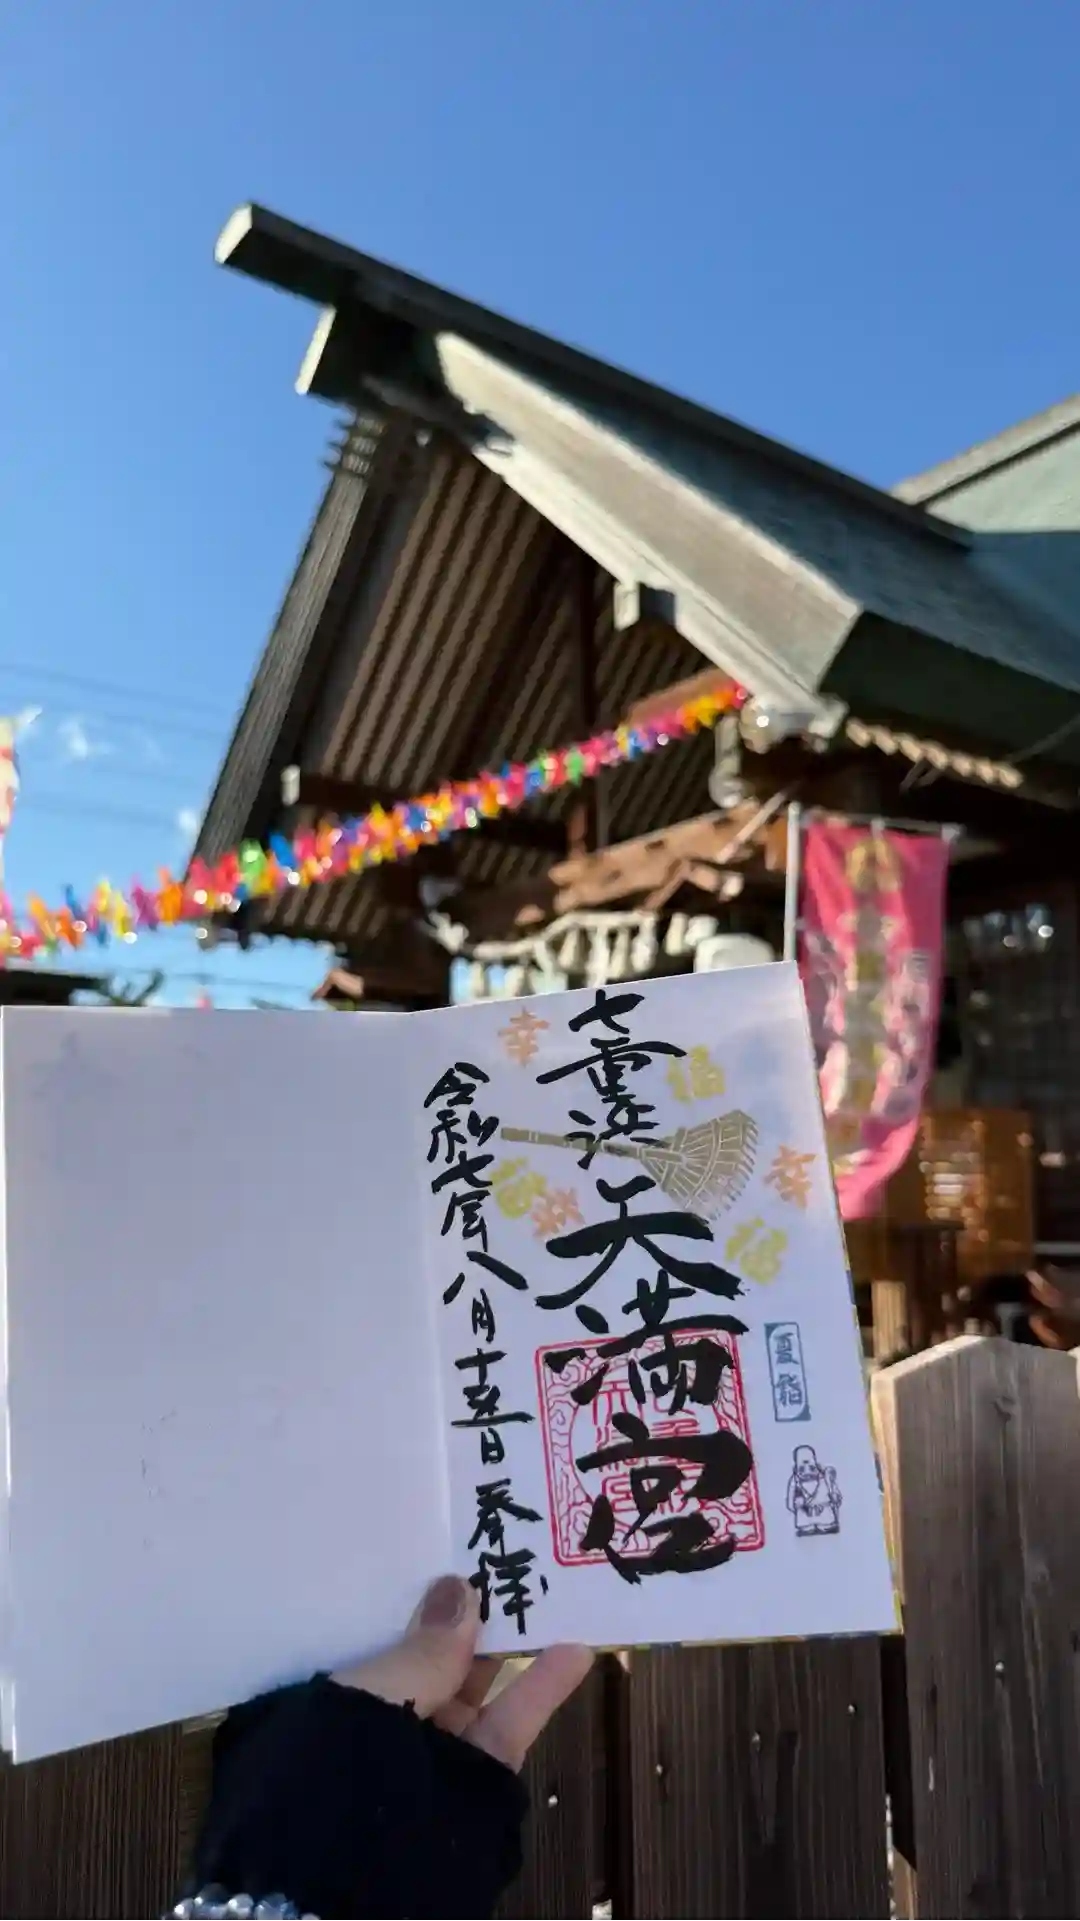 七重浜天満宮
令和七年八月十五日 奉拝
幸
福
幸
福
幸
福
夏詣